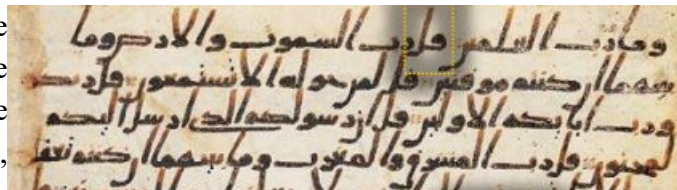 وما رب العلمين قل رب السموت والارض وما
بينهما ان كنتم موقنين قل لمن حوله الا تستمعون قل ربكم
ورب ابائكم الاولين قل ان رسولكم الذي ارسل اليكم
لمجنون قل رب المشرق والمغرب وما بينهما ان كنتم